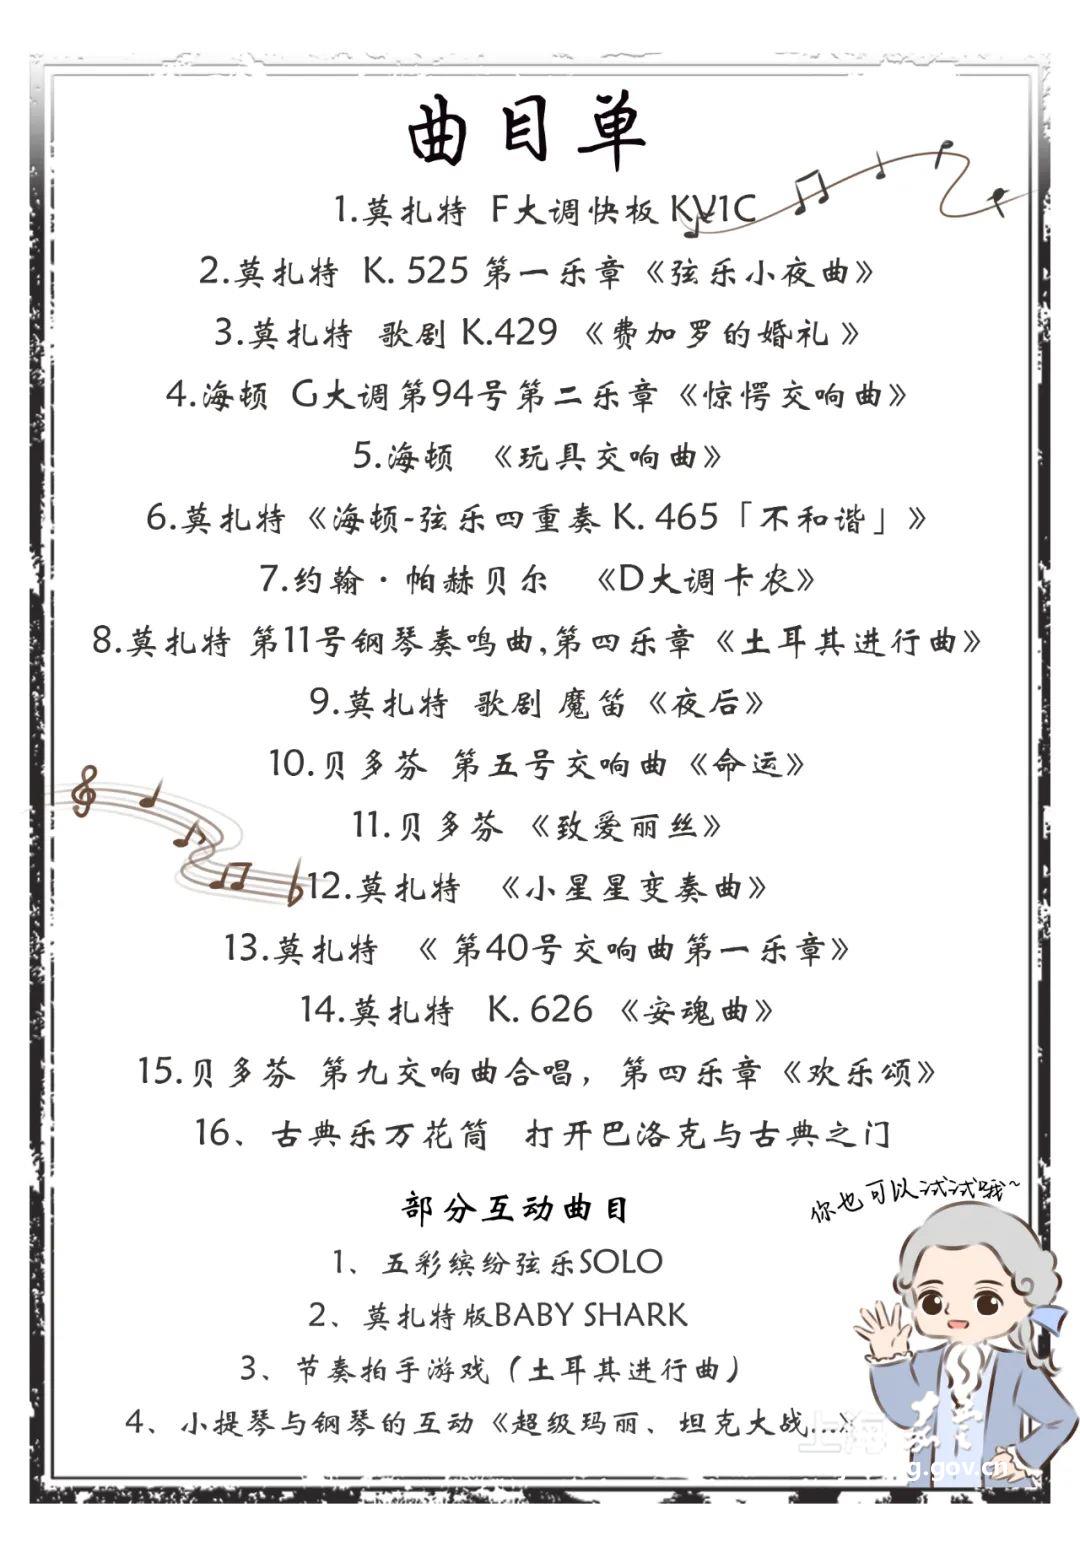 曲目单
1.莫扎特 F大调快板 KV1C
2.莫扎特 K. 525 第一乐章《弦乐小夜曲》
3.莫扎特 歌剧 K.429 《费加罗的婚礼 》
4.海顿 G大调第94号第二乐章《惊愕交响曲》
5.海顿 《玩具交响曲》
6.莫扎特《海顿-弦乐四重奏 K. 465「不和谐」》
7.约翰·帕赫贝尔 《D大调卡农》
8.莫扎特 第11号钢琴奏鸣曲,第四乐章《土耳其进行曲》
9.莫扎特 歌剧 魔笛《夜后》
10.贝多芬 第五号交响曲《命运》
11.贝多芬 《致爱丽丝》
12.莫扎特 《小星星变奏曲》
13.莫扎特 《 第40号交响曲第一乐章》
14.莫扎特 K. 626 《安魂曲》
15.贝多芬 第九交响曲合唱，第四乐章《欢乐颂》
16、古典乐万花筒 打开巴洛克与古典之门
部分互动曲目
你也可以试试哦~
1、五彩缤纷弦乐SOLO
2、莫扎特版BABY SHARK
3、节奏拍手游戏（土耳其进行曲）
4、小提琴与钢琴的互动《超级玛丽、坦克大战...》
上海 嘉定
g.gov.cn